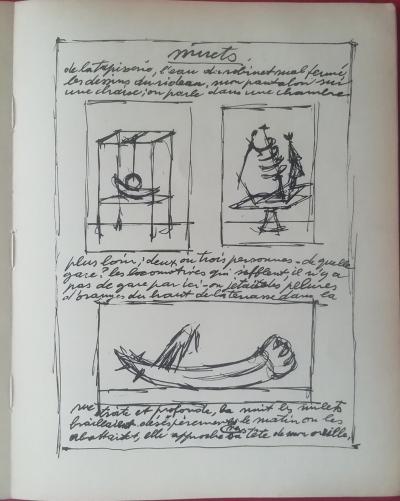 muets,
de la tapisserie, l'eau du robinet mal fermé,
les dessins du rideau, mon pantalon sur
une chaise; on parle dans une chambre
plus loin; deux ou trois personnes - de quelle
gare? les locomotives qui sifflent, il n'y a
pas de gare par ici - on jetait les pelures
d'oranges du haut de la terrasse dans la
rue étroite et profonde, la nuit les mulets
braillaient désespérément, le matin on les
abattait, elle approche sa tête de mon oreille,